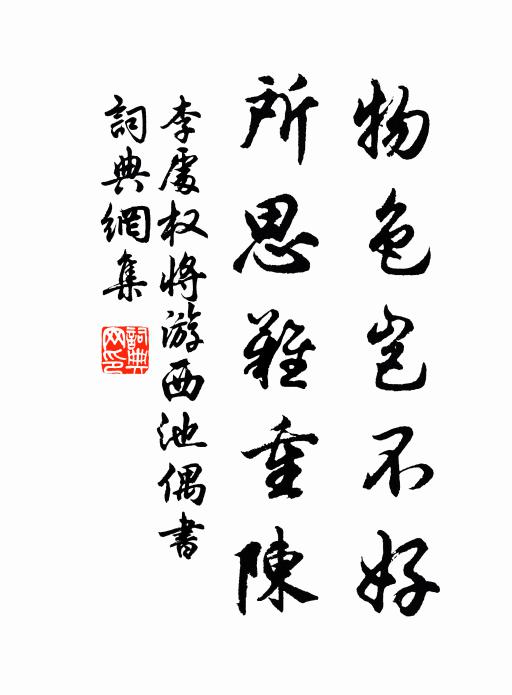 物色岂不好
所思難重陳
李處权将游西池偶書
詞典網集
詞典网印